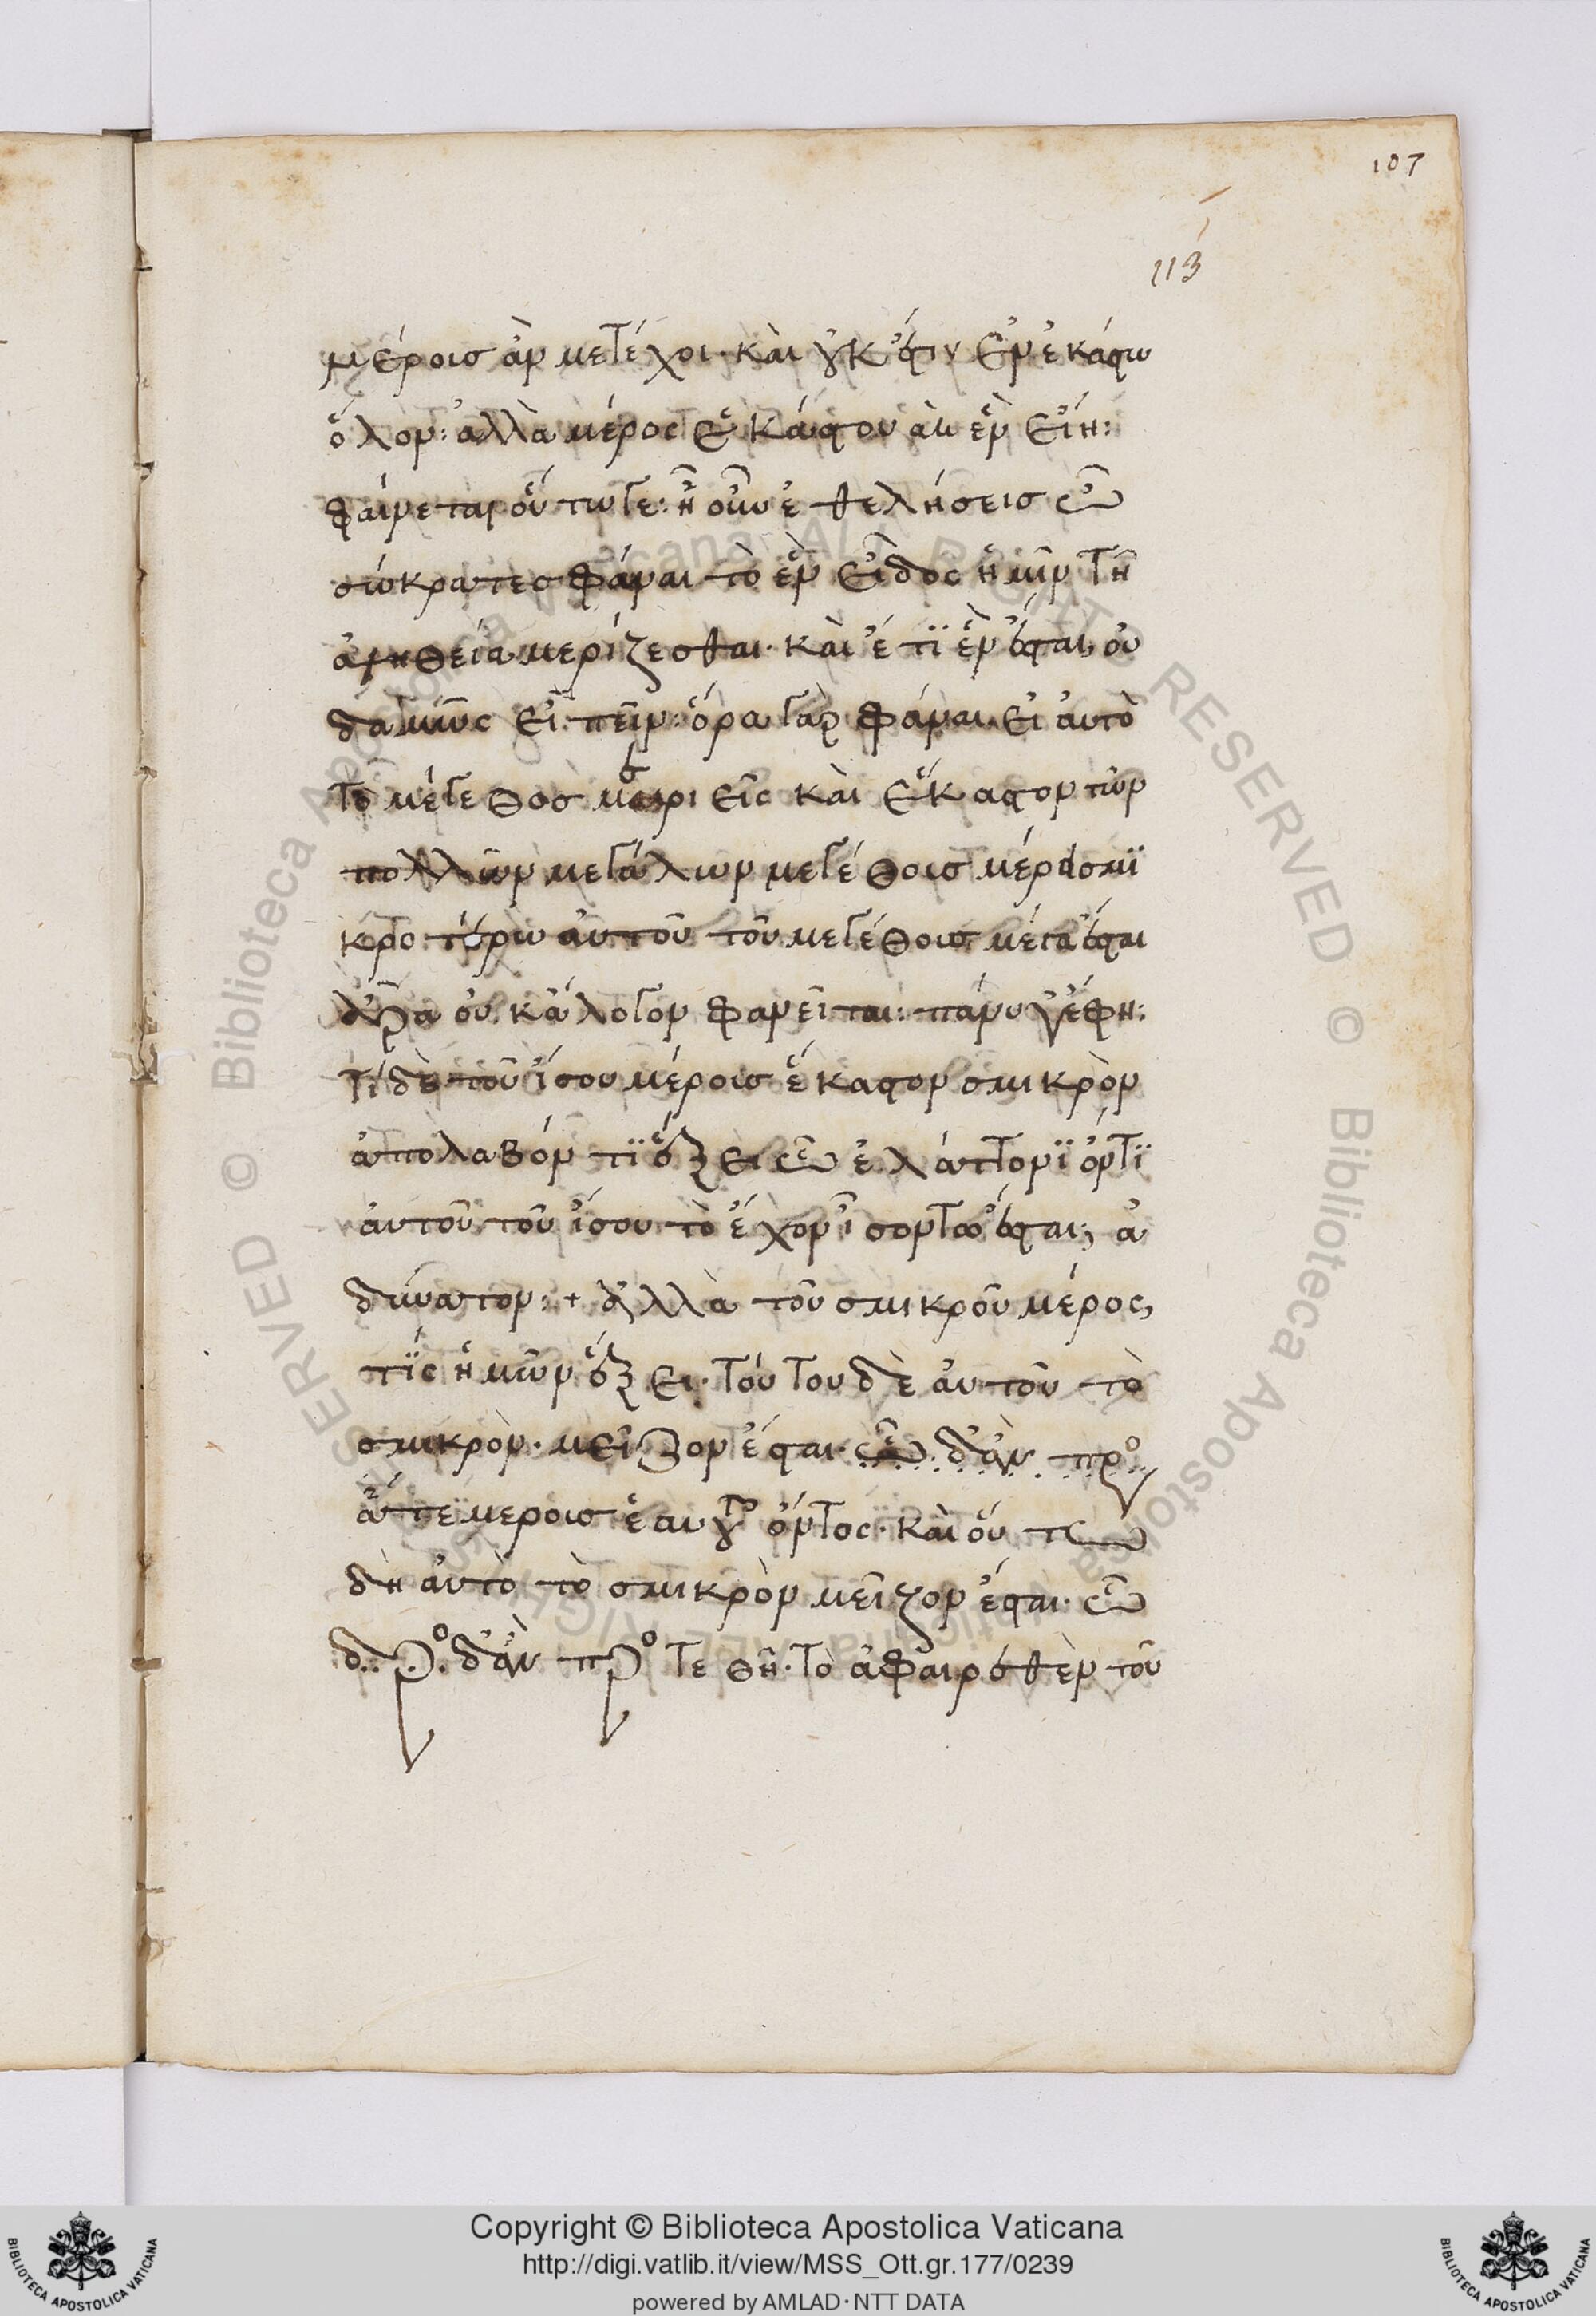 107
113
μέρους ἂν μετέχοι· καὶ οὐκ ἔστιν ἐν ἑκάστω
ὅλον: ἀλλὰ μέρος ἑκάστου ἂν ἓν εἴη:
φαίνεται οὕτω γε: ἦ οὖν ἐθελήσεις ὦ
σώκρατες φάναι τὸ ἓν εἶδος ἡμῖν τῆ
ἀληθεία μερίζεσθαι· καὶ ἔτϊ ἓν ἔσται; οὐ
δαμῶς εἰπεῖν: ὅρα γὰρ φάναι εἰ αὐτὸ
τὸ μέγεθος εἷς καὶ ἕκαστον τῶν
πολλῶν μεγάλων μεγέθους μέρει σμϊ
κροτέρω αὐτοῦ τοῦ μεγέθους μέγα ἔσται
ἆρα οὐκ ἄλογον φανεῖται: πάνυ γ' ἔφη:
τί δὲ τοῦ ἴσου μέρους ἕκαστον σμικρὸν
ἀπολαβόν τϊ ἕξει ὧ ἐλάττονϊ ὄντϊ
αὐτοῦ τοῦ ἴσου τὸ ἔχον ἴσον τω ἔσται; ἀ
δύνατον: + ἀλλὰ τοῦ σμικροῦ μέρος,
τῒς ἡμῶν ἕξει· τούτου δὲ αὐτοῦ τὸ
σμικρὸν· μεῖζον ἔσται· ὧ δ' ἂν προ
ἅτε μέρους ἑαυτοῦ ὄντος· καὶ οὕτω
δὴ αὐτὸ τὸ σμικρὸν μεῖζον ἔσται· ὧ
δ' ἂν προστεθῆ· τὸ ἀφαιρεθὲν τοῦ
© Biblioteca Apostolica Vaticana ALL RIGHTS RESERVED © Biblioteca Apostolica Vaticana ALL RIGHTS RESERVED
Copyright © Biblioteca Apostolica Vaticana
http://digi.vatlib.it/view/MSS_Ott.gr.177/0239
powered by AMLAD·NTT DATA
BIBLIOTECA APOSTOLICA VATICANA
BIBLIOTECA APOSTOLICA VATICANA